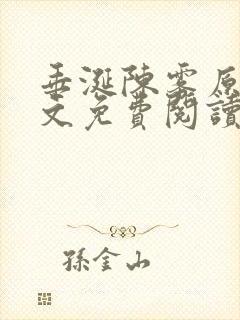 垂涎陳霧原
文免費閱讀
孫金山